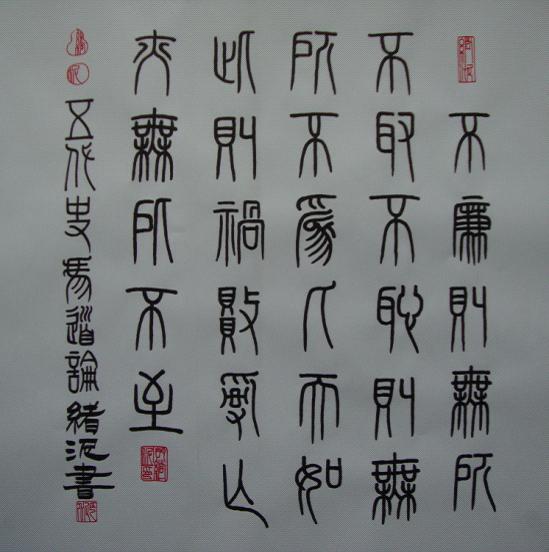 不廉則無所
不取不恥則無
所不為人而如
此則禍敗亂亡
亦無所不至
五代史馮道論緒書